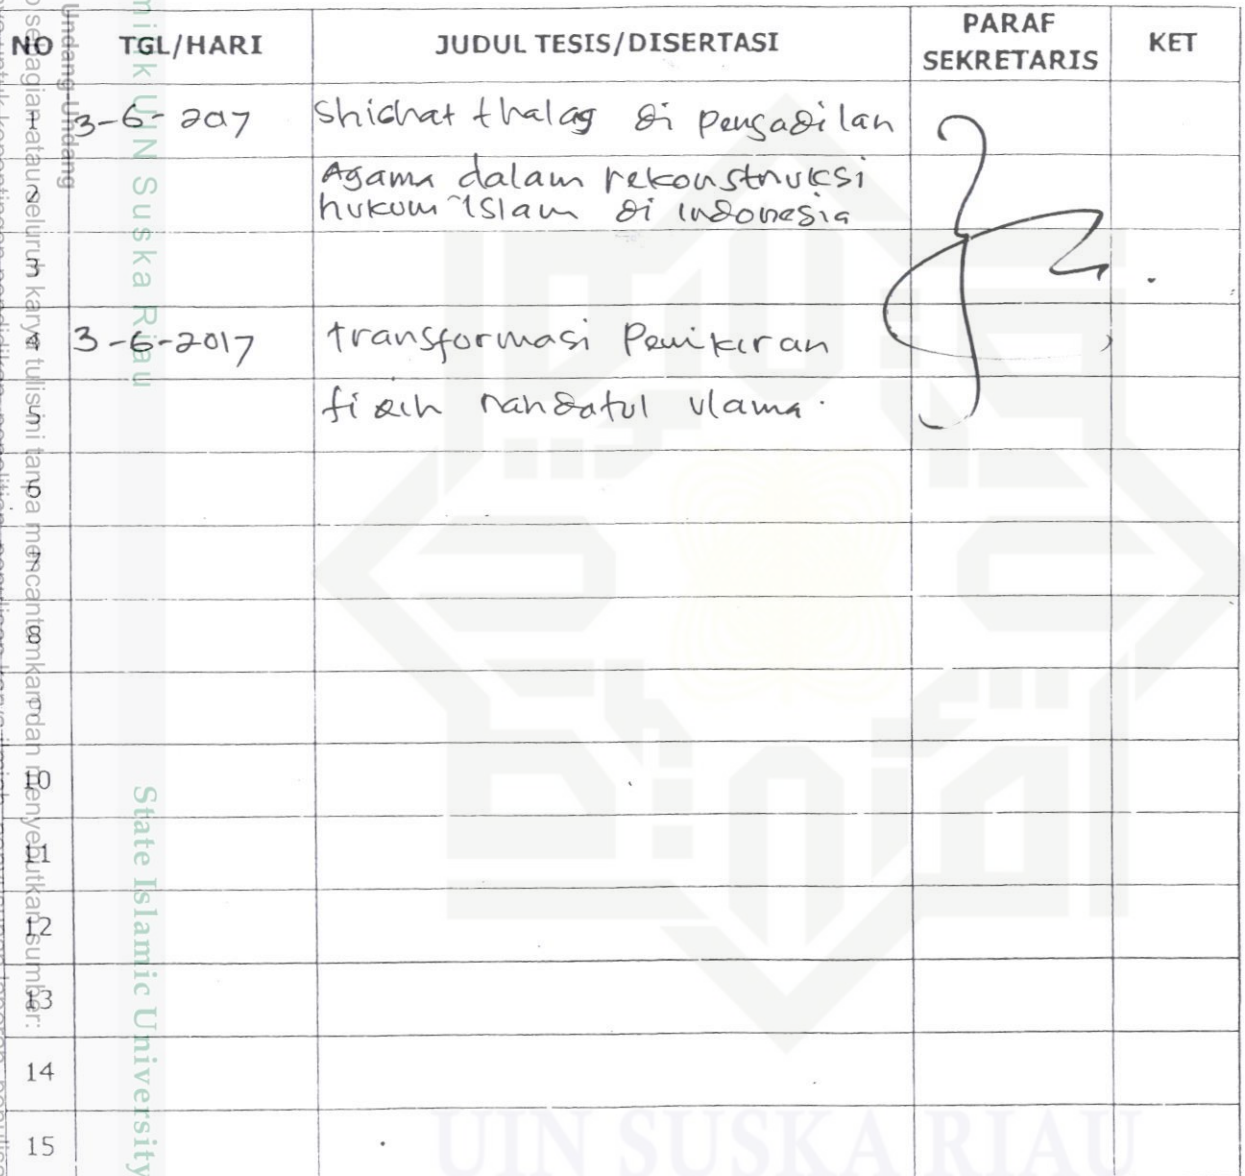 NO TGL/HARI JUDUL TESIS/DISERTASI PARAF SEKRETARIS KET
1 3-6-2017 Shichat thalag di pengadilan
2 Agama dalam rekonstruksi
hukum Islam di Indonesia
3
4 3-6-2017 transformasi Pemikiran
5 fiqih nahdatul ulama.
6
7
8
9
10
11
12
13
14
15
Undang-Undang
sebagian atau seluruh karya tulis ini tanpa mencantumkan dan menyebutkan sumber:
UIN Suska Riau
State Islamic University
UIN SUSKA RIAU